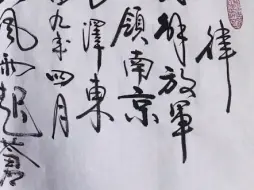 律
解放軍
領南京
澤東
九年四月
風雨起蒼